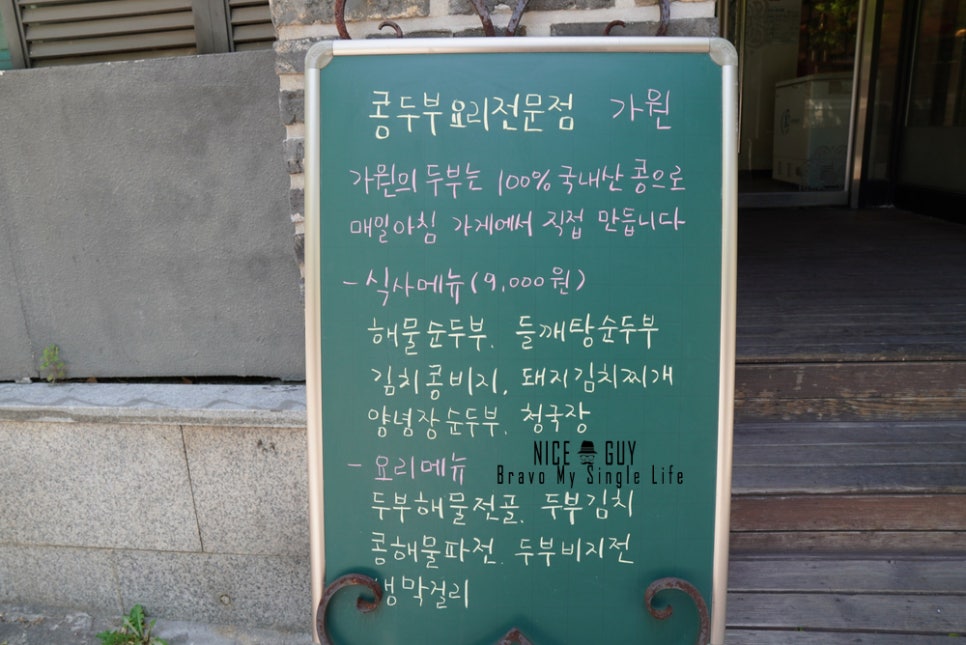 콩두부요리전문점 가원
가원의 두부는 100% 국내산 콩으로
매일아침 가게에서 직접 만듭니다
- 식사메뉴 (9,000원)
해물순두부, 들깨탕순두부
김치콩비지, 돼지김치찌개
양념장순두부, 청국장
NICE GUY
Bravo My Single Life
- 요리메뉴
두부해물전골, 두부김치
콩해물파전, 두부비지전
생막걸리